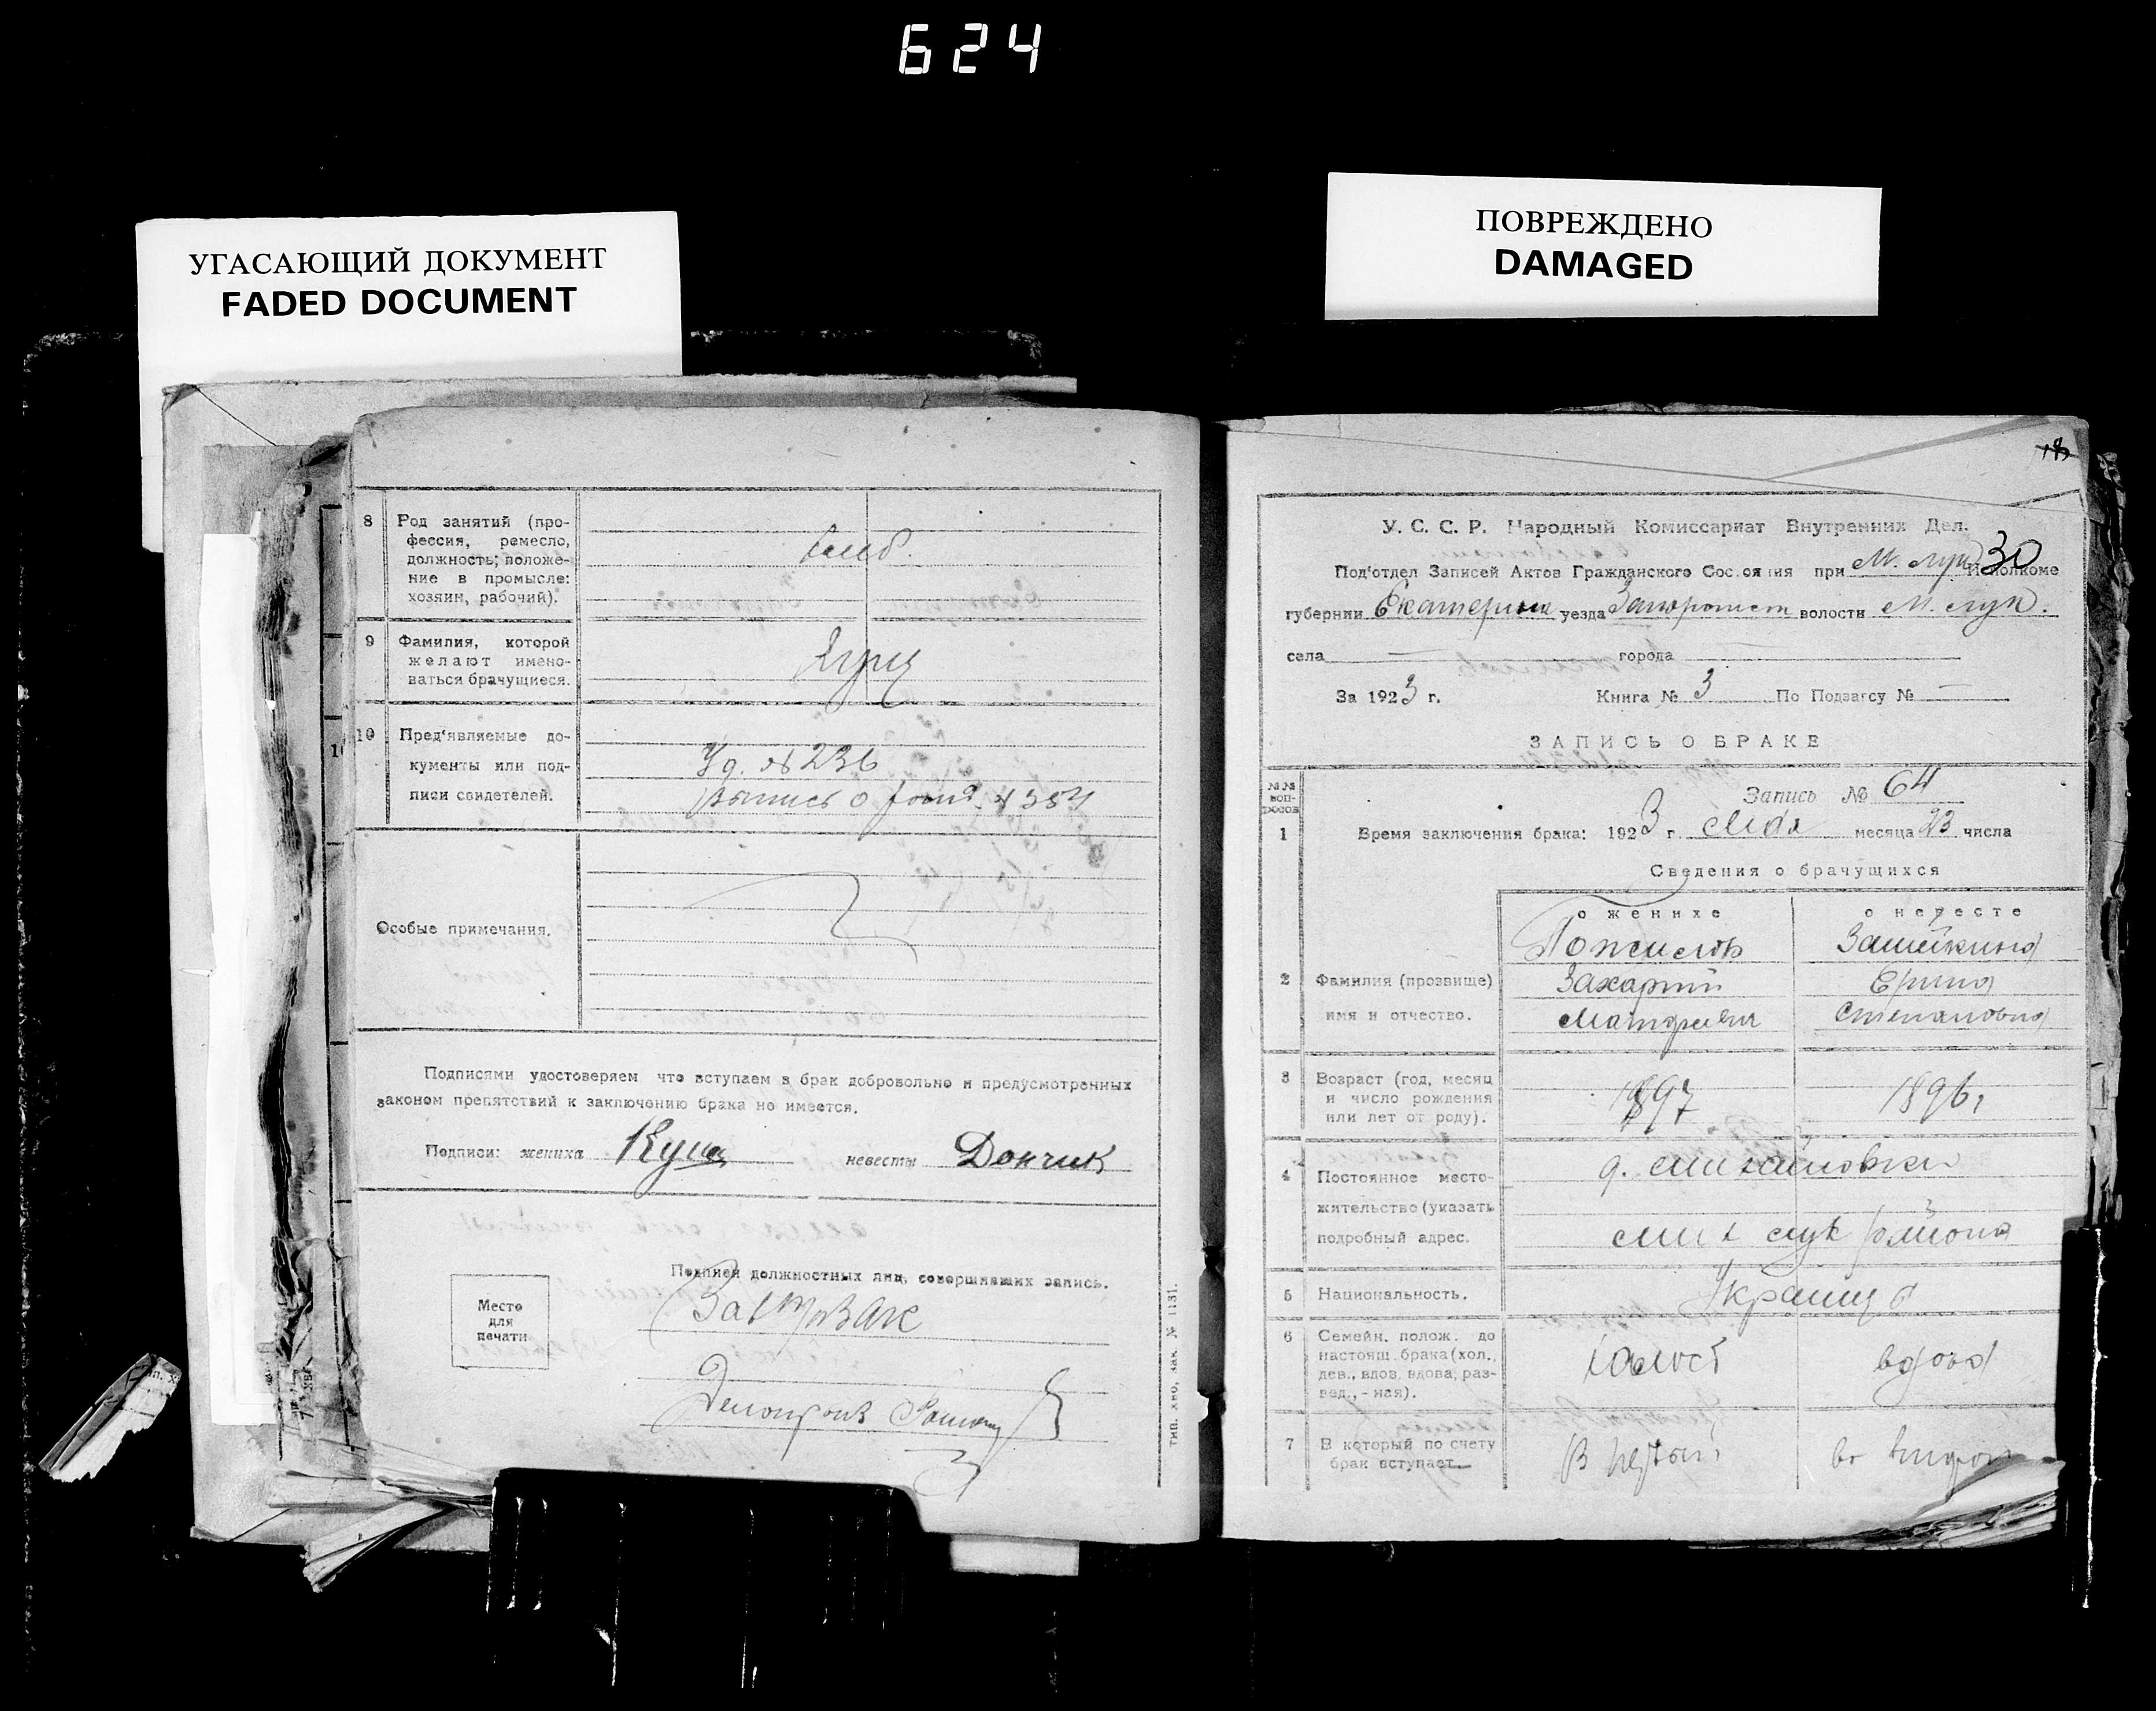 624
УГАСАЮЩИЙ ДОКУМЕНТ
FADED DOCUMENT
ПОВРЕЖДЕНО
DAMAGED
8 Род занятий (про-
фессия, ремесло,
должность; положе-
ние в промысле:
хозяин, рабочий).
9 Фамилия, которой
желают имено-
ваться брачущиеся.
10 Пред'являемые до-
кументы или под-
писи свидетелей.
Уд. № 236
Выпись о
Особые примечания.
Подписями удостоверяем что вступаем в брак добровольно и предусмотренных
законом препятствий к заключению брака не имеется.
Подписи: жениха Куш невесты Дончик
Подписи должностных лиц, совершивших запись.
Место
для
печати
тип. хво, зак. № 1131.
18
У. С. С. Р. Народный Комиссариат Внутренних Дел.
30
Под'отдел Записей Актов Гражданского Состояния при М. Лук Исполкоме
губернии Екатерин уезда волости М. лук.
села — города —
За 1923 г. Книга № 3 По Подзагсу № —
ЗАПИСЬ О БРАКЕ
№№
воп-
росов
Запись № 64
1 Время заключения брака: 1923 г. Мая месяца 23 числа
Сведения о брачущихся
о женихе о невесте
2 Фамилия (прозвище)
имя и отчество.
Захарий
Степановна
3 Возраст (год, месяц
и число рождения
или лет от роду).
1897 1896
4 Постоянное место-
жительство (указать
подробный адрес.
с. Михайловки
Мих лук района
5 Национальность. Украинц
6 Семейн. полож. до
настоящ. брака (хол.,
дев., вдов, вдова, раз-
вед., - ная).
холост вдова
7 В который по счету
брак вступает.
В первый во второй